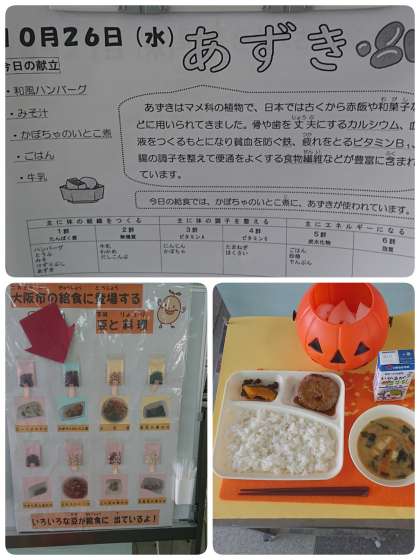 10月26日(水)
あずき
今日の献立
・和風ハンバーグ
・みそ汁
・かぼちゃのいとこ煮
・ごはん
・牛乳
あずきはマメ科の植物で、日本では古くから赤飯や和菓子な
どに用いられてきました。骨や歯を丈夫にするカルシウム、血
液をつくるもとになり貧血を防ぐ鉄、疲れをとるビタミンB₁、
腸の調子を整えて便通をよくする食物繊維などが豊富に含まれ
ています。
今日の給食では、かぼちゃのいとこ煮に、あずきが使われています。
主に体の組織をつくる
主に体の調子を整える
主にエネルギーになる
1群 2群 3群 4群 5群 6群
たんぱく質 無機質 ビタミンA ビタミンC 炭水化物 脂質
ハンバーグ 牛乳 にんじん たまねぎ ごはん
とうふ わかめ かぼちゃ はくさい 砂糖
みそ だしこんぶ でんぷん
あずき
大阪市の給食に登場する
豆と料理
いろいろな豆が給食に出ているよ!